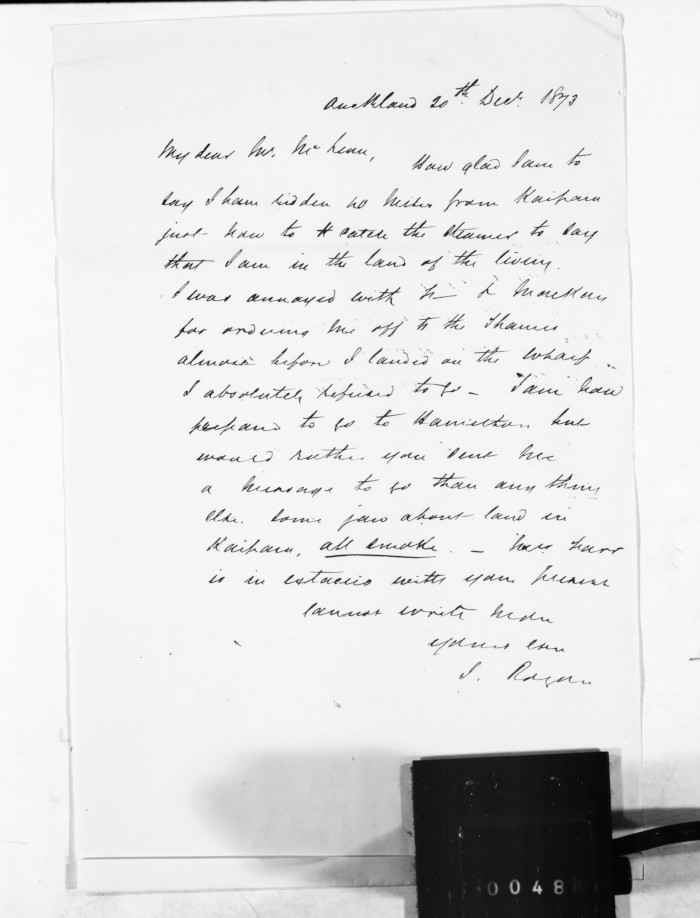 Auckland 20th Decr. 1873
My dear Mr. McLean,
How glad I am to
say I have ridden 40 miles from Kaipara
just now to catch the steamer to say
that I am in the land of the living.
I was annoyed with
for ordering me off to the Thames
almost before I landed on the wharf
I absolutely refused to go - I am now
prepared to go to Hamilton but
would rather you sent me
a message to go than any thing
else. Some jaw about land in
Kaipara, all smoke. - Mrs
is in extacies with your present
Cannot write more
yours ever
Rogan
0048